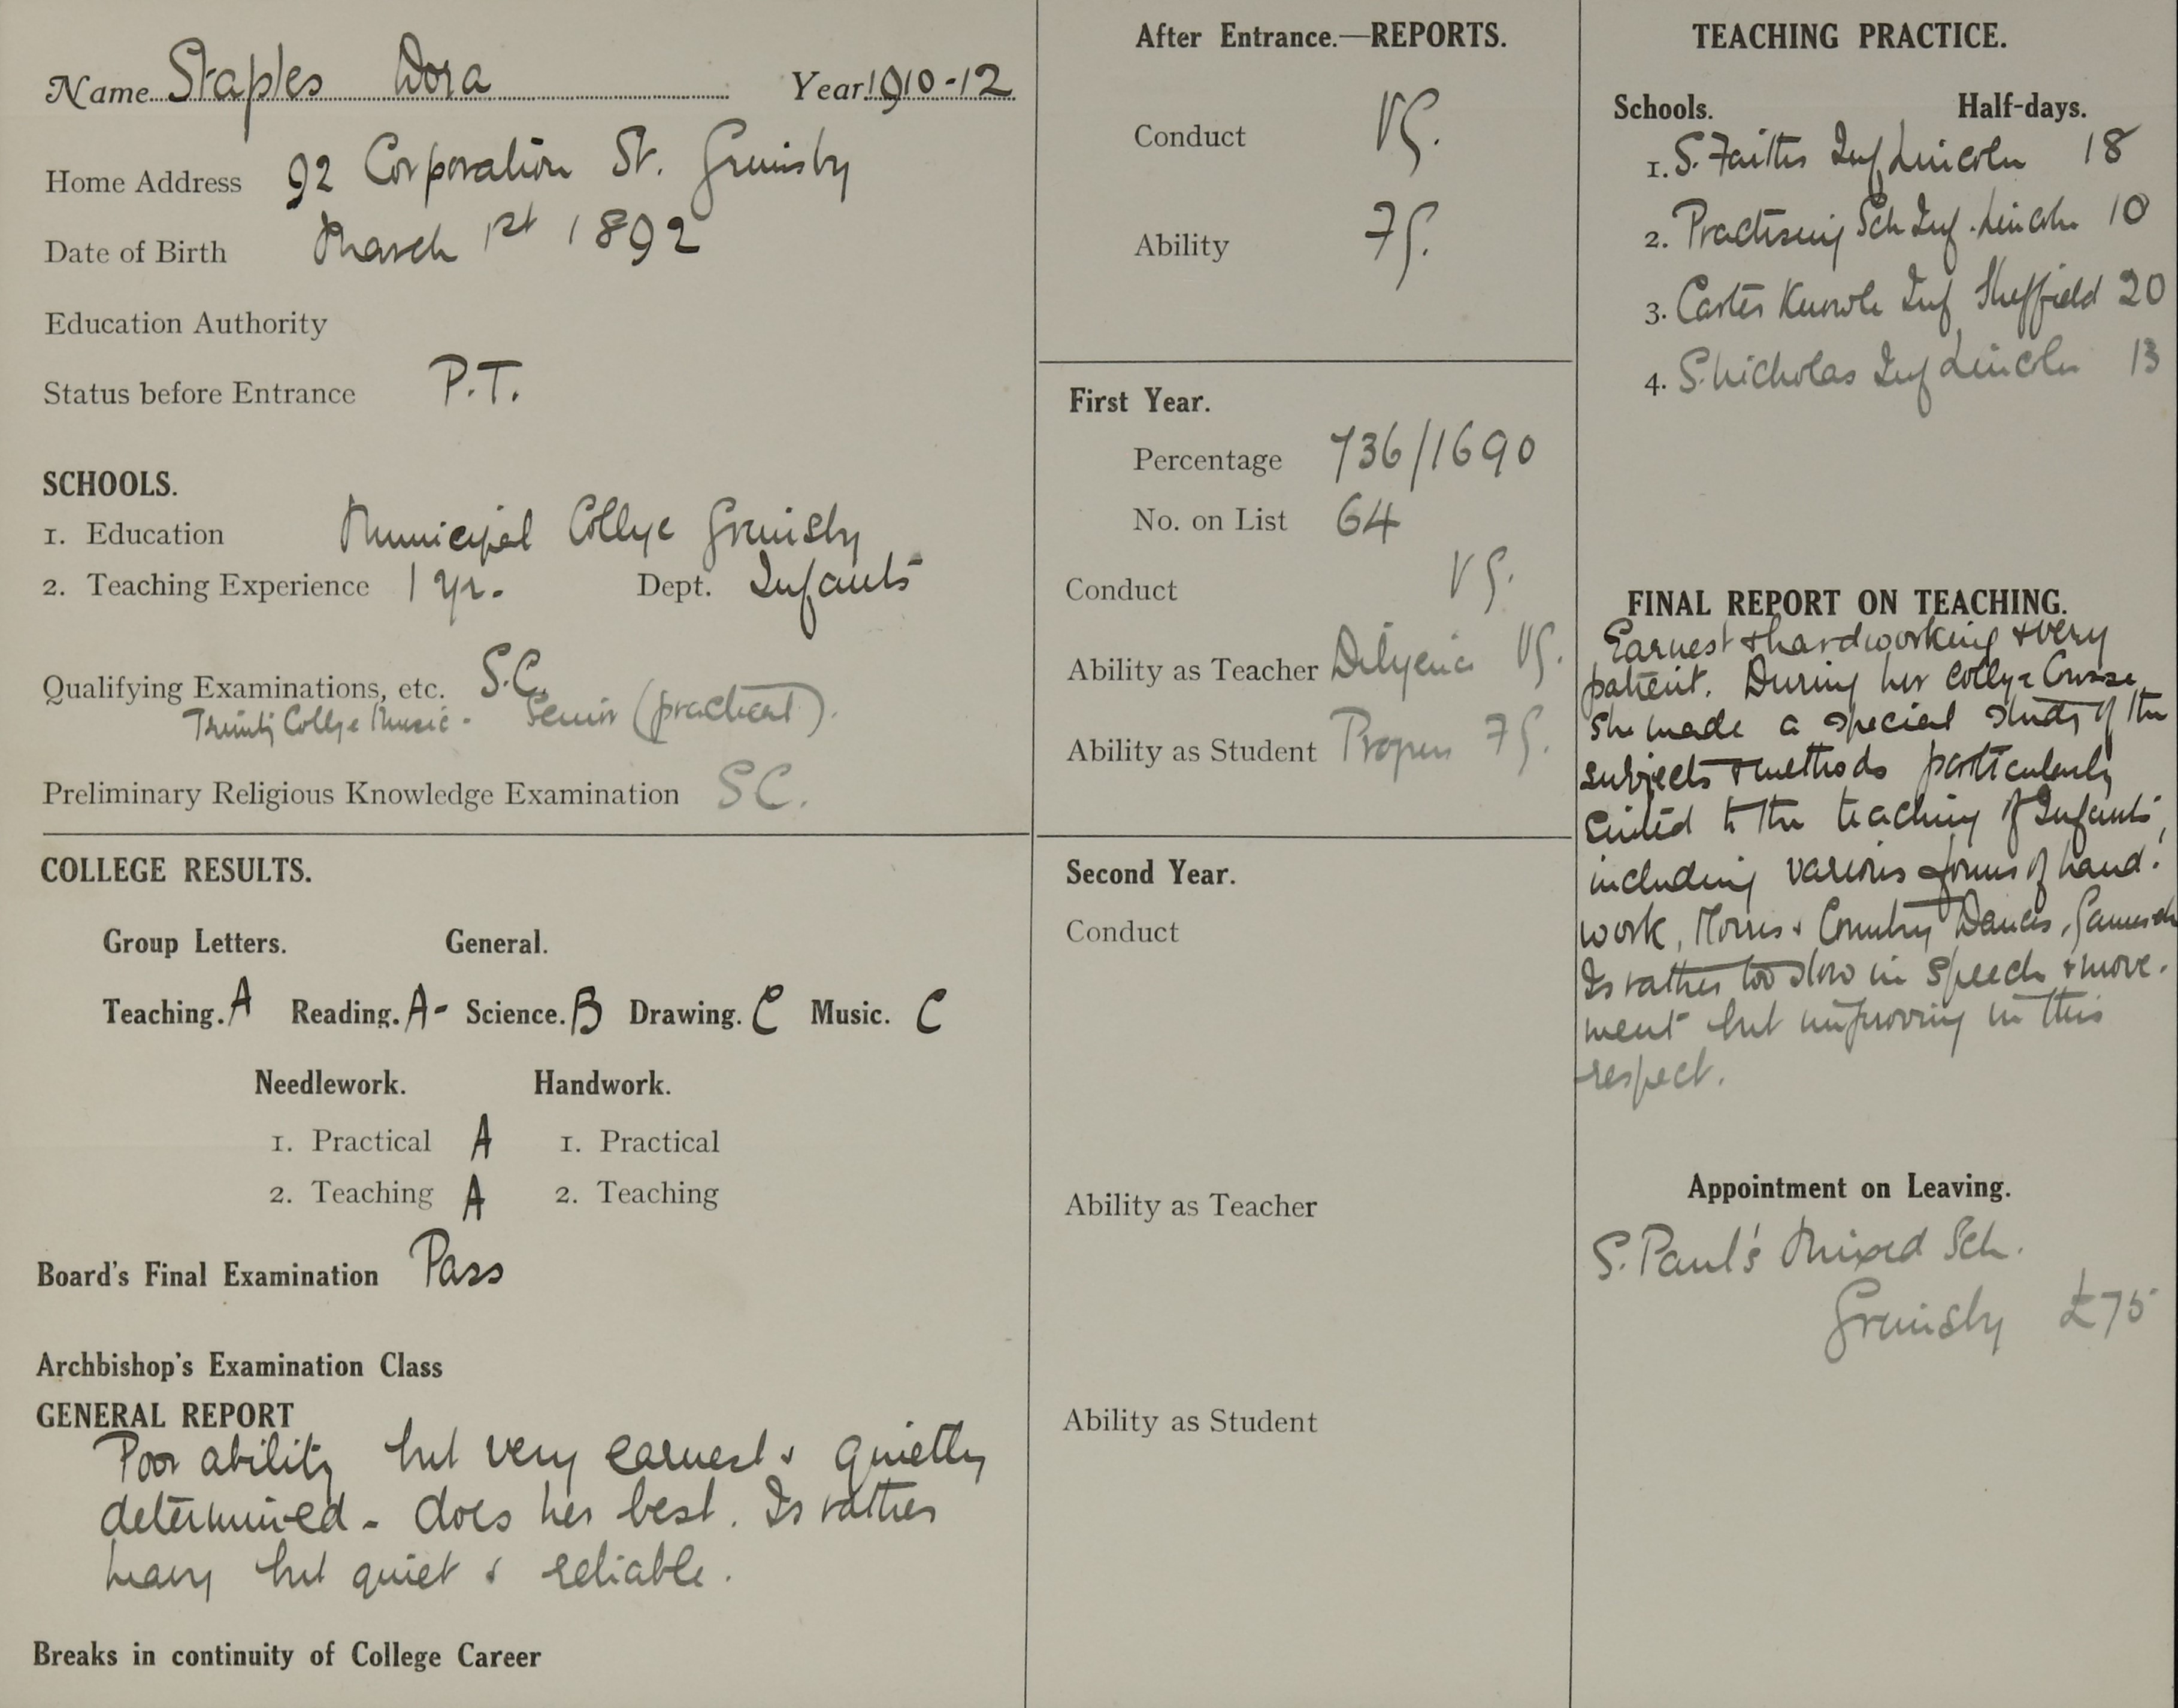 Name Staples Dora Year 1910-12
Home Address 92 Corporation St. Grimsby
Date of Birth March 1st 1892
Education Authority
Status before Entrance P.T.
SCHOOLS.
1. Education Municipal College Grimsby
2. Teaching Experience 1 yr. Dept. Infants
Qualifying Examinations, etc. S.C.
Trinity College Music - Senior (practical).
Preliminary Religious Knowledge Examination S.C.
COLLEGE RESULTS.
Group Letters. General.
Teaching. A Reading. A- Science. B Drawing. C Music. C
Needlework. Handwork.
1. Practical A 1. Practical
2. Teaching A 2. Teaching
Board's Final Examination Pass
Archbishop's Examination Class
GENERAL REPORT
Poor ability but very earnest & quietly
determined - does her best. Is rather
heavy but quiet & reliable.
Breaks in continuity of College Career
After Entrance.—REPORTS.
Conduct VG.
Ability FG.
First Year.
Percentage 736/1690
No. on List 64
Conduct VG.
Ability as Teacher Diligence VG.
Ability as Student Progress FG.
Second Year.
Conduct
Ability as Teacher
Ability as Student
TEACHING PRACTICE.
Schools. Half-days.
1. S. Faiths Inf Lincoln 18
2. Practising Sch Inf. Lincoln 10
3. Carter Knowle Inf Sheffield 20
4. S. Nicholas Inf Lincoln 13
FINAL REPORT ON TEACHING.
Earnest & hardworking & very
patient. During her College Course
she made a special study of the
subjects & methods particularly
suited to the teaching of Infants,
including various forms of hand-
work, Morris & Country Dances, Games etc
Is rather too slow in speech & move-
ment but improving in this
respect.
Appointment on Leaving.
S. Paul's Mixed Sch.
Grimsby £75